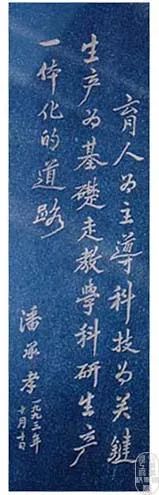 育人为主導科技为关鍵
生产为基礎走教學科研生产
一体化的道路
潘承孝
一九九三年
十月十日